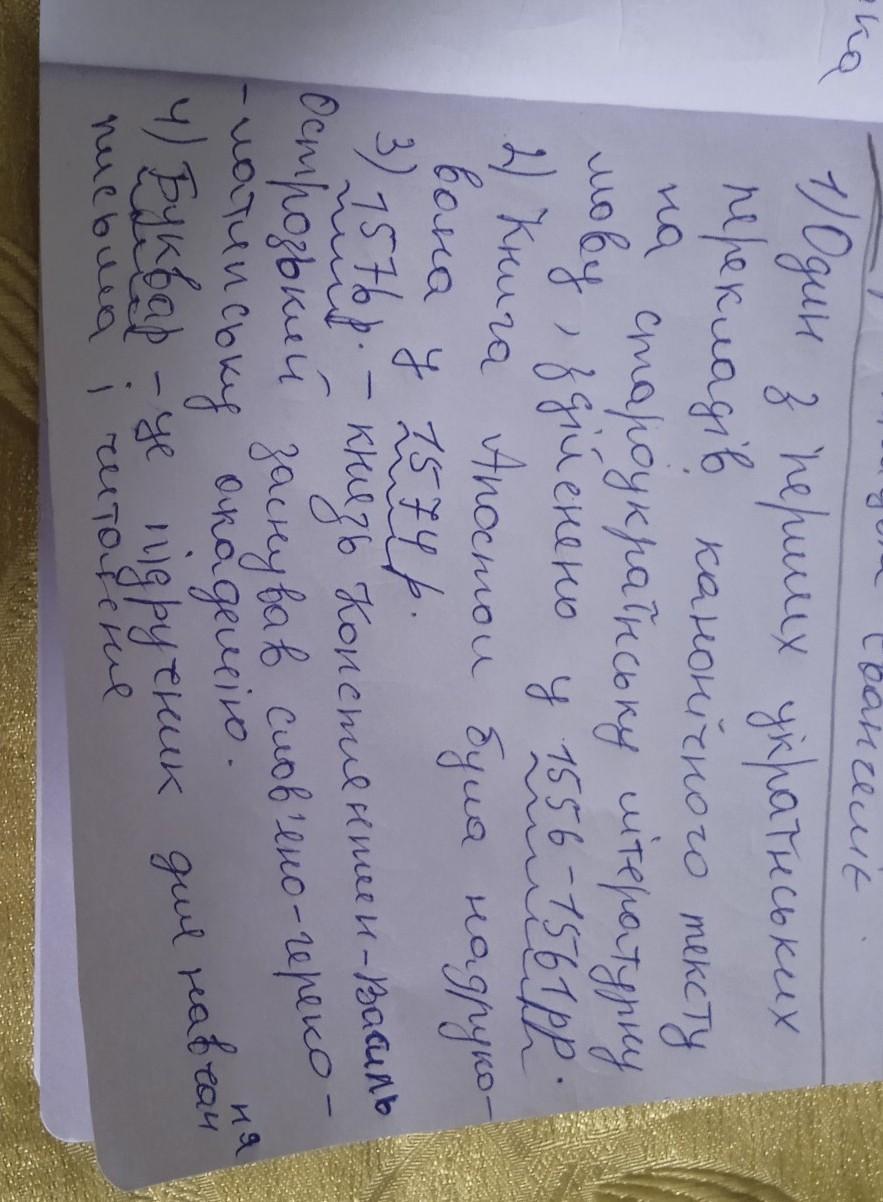 ка
Євангеліє
1) Один з перших українських
перекладів канонічного тексту
на староукраїнську літературну
мову, зділенено у 1556-1561рр.
2) Книга Апостол була надруко-
вана у 1574р.
3) 1576р. – князь Констянтин-Василь
Острозький заснував слов'яно-греко-
-латинську академію.
4) Буквар – це підручник для навчан
ня
письма і читання